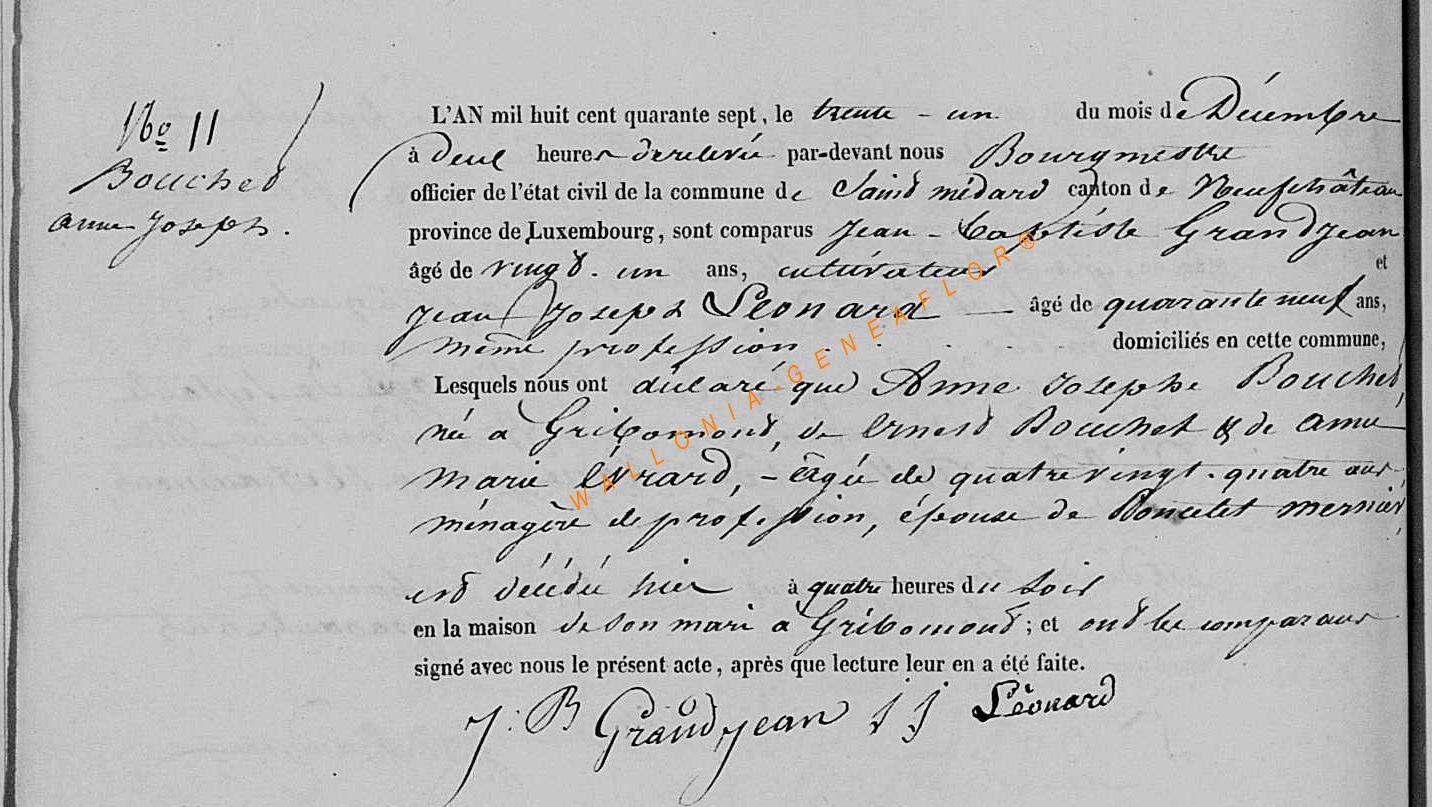 No 11
Bouchet
anne Joseph.
L'AN mil huit cent quarante sept, le trente - un du mois de Décembre
à deux heures de relevée par-devant nous Bourgmestre
officier de l'état civil de la commune de Saint médard canton de Neufchâteau
province de Luxembourg, sont comparus Jean - Baptiste Grandjean
âgé de vingt - un ans, cultivateur et
Jean Joseph Léonard — âgé de quarante neuf ans,
même profession . . . domiciliés en cette commune,
Lesquels nous ont déclaré que Anne Josephe Bouchet,
née à Gribomont, de Ernest Bouchet & de anne
marie Evrard, - âgée de quatre vingt - quatre ans
ménagère de profession, épouse de Poncelet mernier,
est décédée hier à quatre heures du soir
en la maison de son mari à Gribomont ; et ont les comparans
signé avec nous le présent acte, après que lecture leur en a été faite.
J. B Grandjean J J Léonard
WALLONIA-GENEAFLOR®